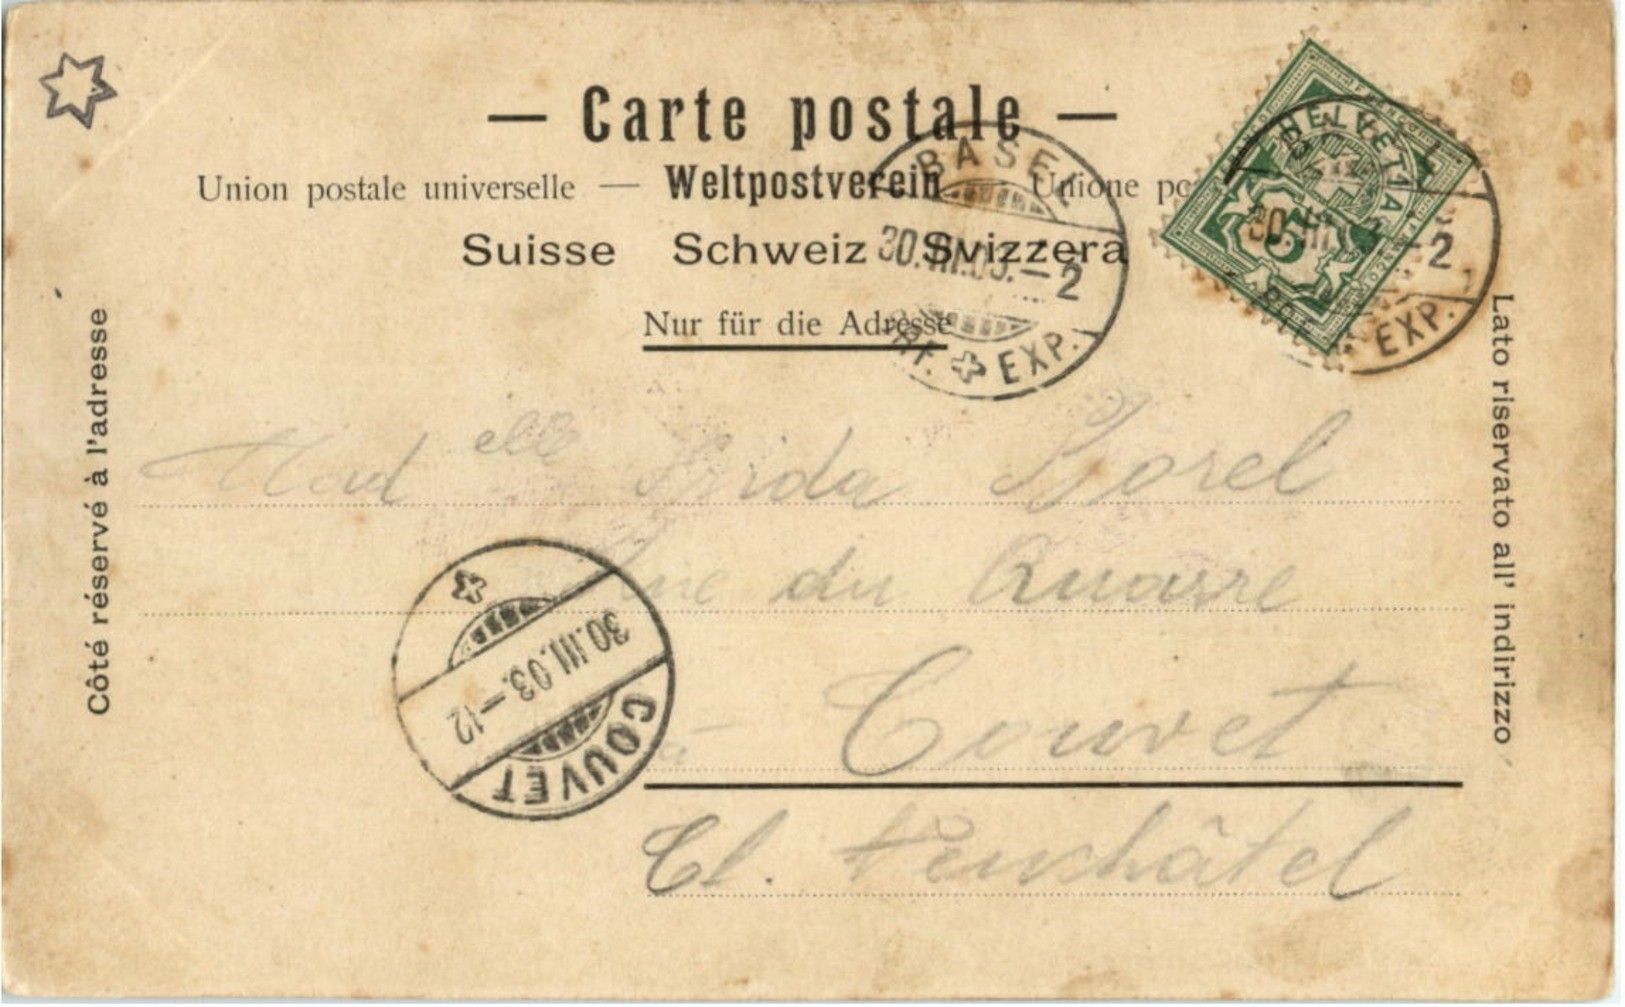 — Carte postale —
Union postale universelle — Weltpostverein — Unione po
Suisse Schweiz Svizzera
Nur für die Adresse
Côté réservé à l'adresse
Lato riservato all' indirizzo
HELVETIA
5
BASEL
30.III.03.—2
BRF. EXP.
L
30.III. —2
EXP.
Madelle Lida Borel
Rue du Quarre
à Couvet
Ct. Neuchâtel
COUVET
30.III.03.—12